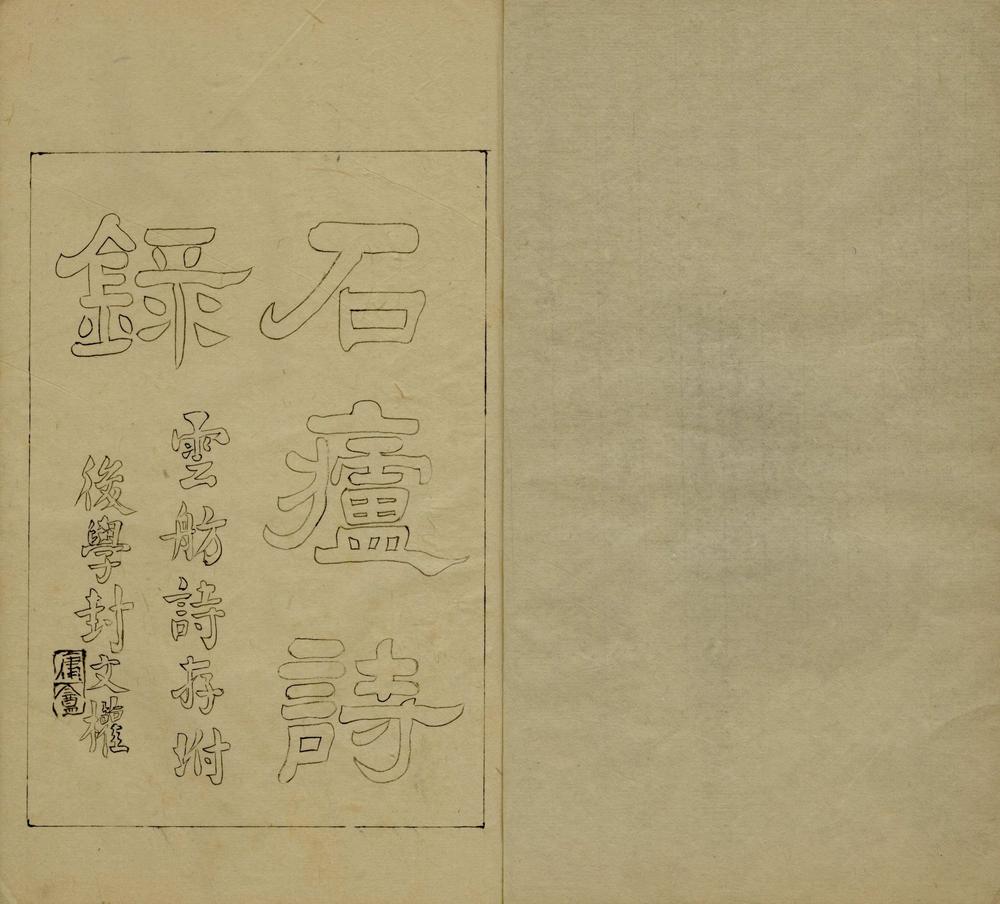 石廬詩
録
雲舫詩存坿
後學封文權
庸盦